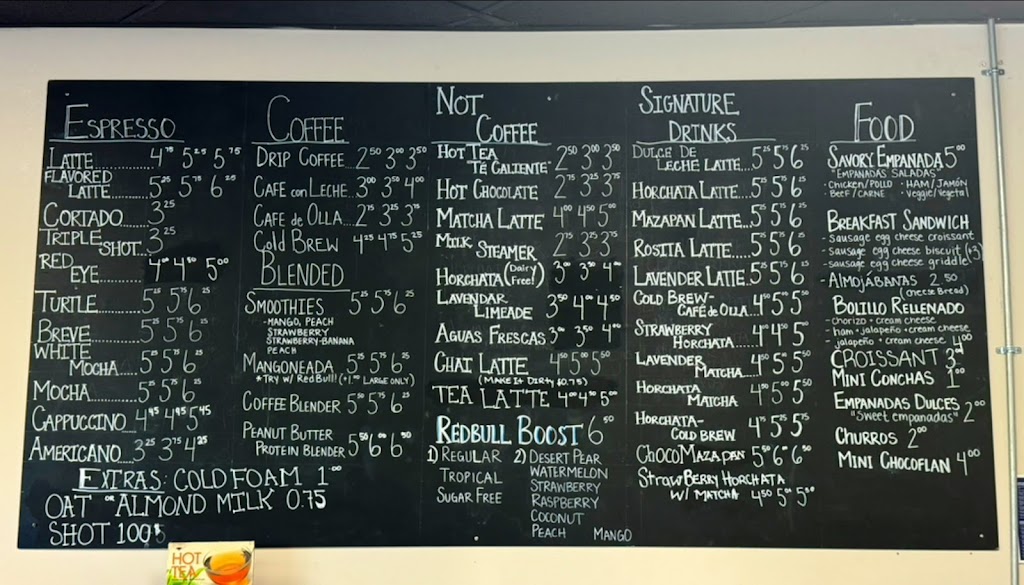 ESPRESSO
LATTE.......... 4.75 5.25 5.75
FLAVORED
LATTE..... 5.25 5.75 6.25
CORTADO.... 3.25
TRIPLE
SHOT. 3.25
RED
EYE....... 4.00 4.50 5.00
TURTLE........ 5.25 5.75 6.25
BREVE......... 5.25 5.75 6.25
WHITE
MOCHA..... 5.25 5.75 6.25
MOCHA......... 5.25 5.75 6.25
CAPPUCCINO.. 4.45 4.95 5.45
AMERICANO... 3.25 3.75 4.25
EXTRAS: COLD FOAM 1.00
OAT OR ALMOND MILK 0.75
SHOT 100
COFFEE
DRIP COFFEE.. 2.50 3.00 3.50
CAFE con LECHE. 3.00 3.50 4.00
CAFE de OLLA... 2.75 3.25 3.75
Cold BREW 4.25 4.75 5.25
BLENDED
SMOOTHIES 5.25 5.75 6.25
-MANGO, PEACH
STRAWBERRY
STRAWBERRY-BANANA
PEACH
MANGONEADA 5.25 5.75 6.25
*TRY W/ RedBull! (+1.00 LARGE ONLY)
COFFEE BLENDER 5.25 5.75 6.25
PEANUT BUTTER
PROTEIN BLENDER 5.50 6.00 6.50
NOT
COFFEE
HOT TEA
TÉ CALIENTE 2.50 3.00 3.50
HOT CHOCOLATE 2.75 3.25 3.75
MATCHA LATTE 4.00 4.50 5.00
MILK
STEAMER 2.75 3.25 3.75
HORCHATA (Dairy Free!) 3.00 3.50 4.00
LAVENDAR
LIMEADE 3.50 4.00 4.50
AGUAS FRESCAS 3.00 3.50 4.00
CHAI LATTE 4.50 5.00 5.50
(MAKE IT DIRTY $0.75)
TEA LATTE 4.00 4.50 5.00
REDBULL BOOST 6.50
1) REGULAR
TROPICAL
SUGAR FREE
2) DESERT PEAR
WATERMELON
STRAWBERRY
RASPBERRY
COCONUT
PEACH MANGO
SIGNATURE
DRINKS
DULCE DE
LECHE LATTE.. 5.25 5.75 6.25
HORCHATA LATTE.. 5.25 5.75 6.25
MAZAPAN LATTE... 5.25 5.75 6.25
ROSITA LATTE..... 5.25 5.75 6.25
LAVENDER LATTE. 5.25 5.75 6.25
COLD BREW-
CAFÉ de OLLA... 4.50 5.00 5.50
STRAWBERRY
HORCHATA....... 4.00 4.50 5.00
LAVENDER
MATCHA.... 4.50 5.00 5.50
HORCHATA
MATCHA 4.50 5.00 5.50
HORCHATA-
COLD BREW 4.75 5.25 5.75
CHOCOMAZAPAN 5.50 6.00 6.50
STRAWBERRY HORCHATA
W/ MATCHA 4.50 5.00 5.50
FOOD
SAVORY EMPANADA 5.00
"EMPANADAS SALADAS"
• CHICKEN/POLLO • HAM/JAMÓN
• BEEF/CARNE • Veggie/Vegetal
BREAKFAST SANDWICH
- sausage egg cheese croissant
- sausage egg cheese biscuit (+3)
- sausage egg cheese griddle
-ALMOJABANAS 2.50
(cheese Bread)
BOLILLO RELLENADO
- chorizo + cream cheese
- ham + jalapeño + cream cheese
- jalapeño + cream cheese 4.00
CROISSANT 3
MINI CONCHAS 1.00
EMPANADAS DULCES 2.00
"Sweet empanadas"
CHURROS 2.00
MINI CHOCOFLAN 4.00
HOT
TEA